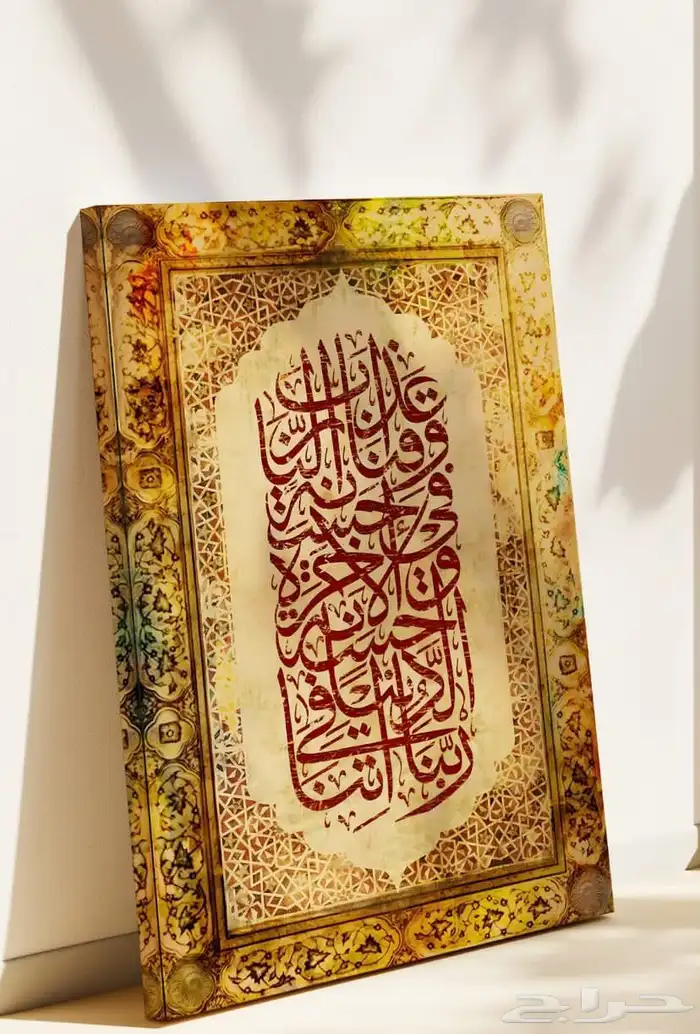 ربنا آتنا
في الدنيا
حسنة
وفي الآخرة
حسنة
وقنا عذاب النار
حراج